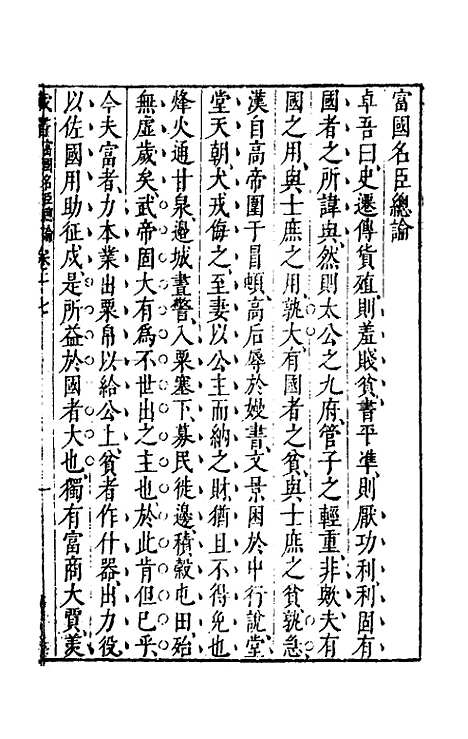 富國名臣總論
卓吾曰史遷傳貨殖則羞賤貧書平準則厭功利利固有
國者之所諱與然則太公之九府管子之輕重非歟夫有
國之用與士庶之用孰大有國者之貧與士庶之貧孰急
漢自高帝圍于冒頓高后辱於嫚書文景困於中行說堂
堂天朝犬戎侮之至妻以公主而納之財猶且不得免也
烽火通甘泉邊城晝警入粟塞下募民徙邊積穀屯田殆
無虛歲矣武帝固大有為不世出之主也於此肯但已乎
今夫富者力本業出粟帛以給公上貧者作什器出力役
以佐國用助征戍是所益於國者大也獨有富商大賈羡
藏書富國名臣總論卷十七 一